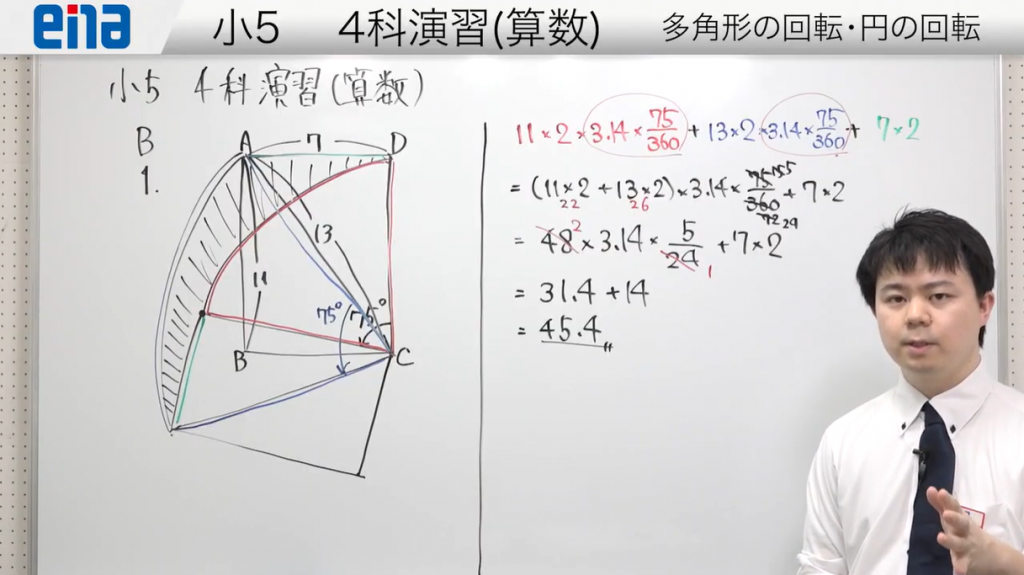 ena 小5 4科演習(算数) 多角形の回転・円の回転
小5 4科演習(算数)
B
1.
A 7 D
13
11
75° 75°
B C
11×2×3.14×75/360+13×2×3.14×75/360+ 7×2
=(11×2+13×2)×3.14×75/360+7×2
22 26
15 5
72 24
=48×3.14×5/24+7×2
2 1
=31.4+14
=45.4